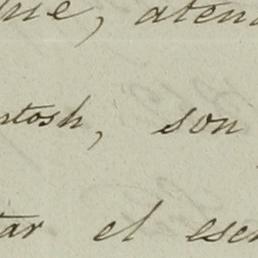 que, aten
ntosh, son
tar el esc